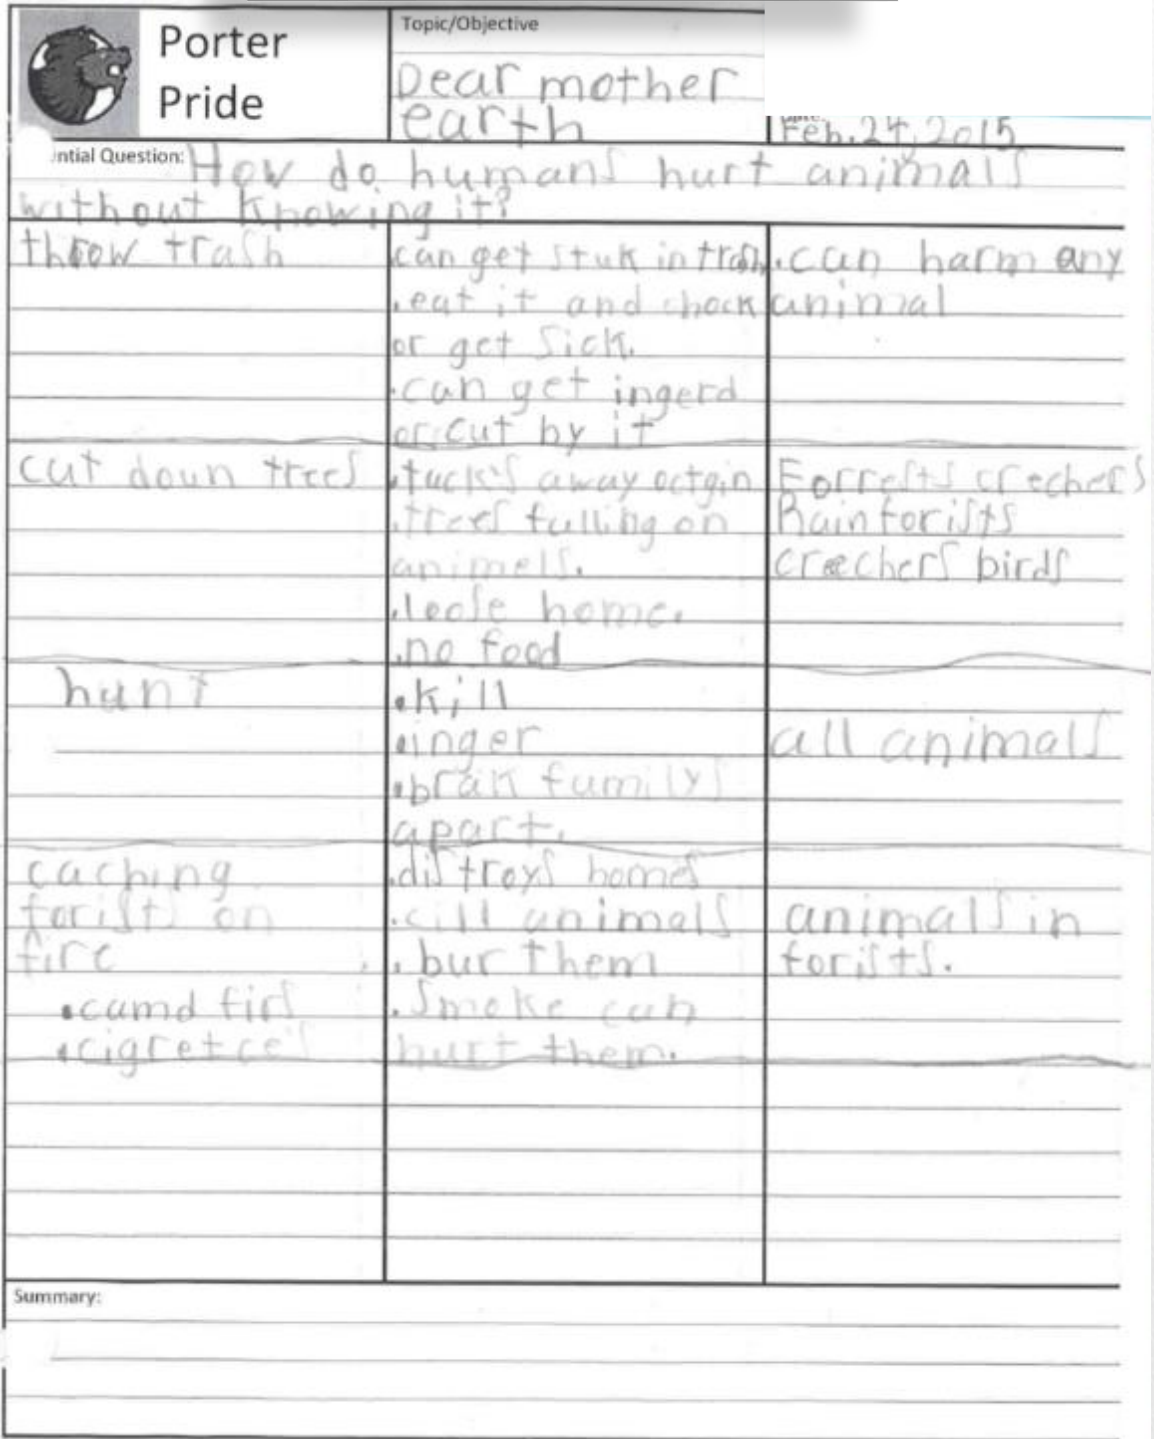 Porter
Pride
Topic/Objective
Dear mother
earth
Feb.24,2015
ntial Question: How do humans hurt animals
without knowing it?
throw trash
can get stuk in trash
.eat it and chock
or get sick.
.can get ingerd
or cut by it
.can harm any
animal
cut doun trees
.tuck's away octgin
.trees falling on
animels.
.loose home.
.no food
Forrests crechers
Rainforists
creechers birds
hunt
.kill
.inger
.brak familys
apart.
all animals
caching
forists on
fire
.camd firs
.cigretce's
.distroys homes
.cill animals
.bur them
.smoke can
hurt them.
animals in
forists.
Summary: